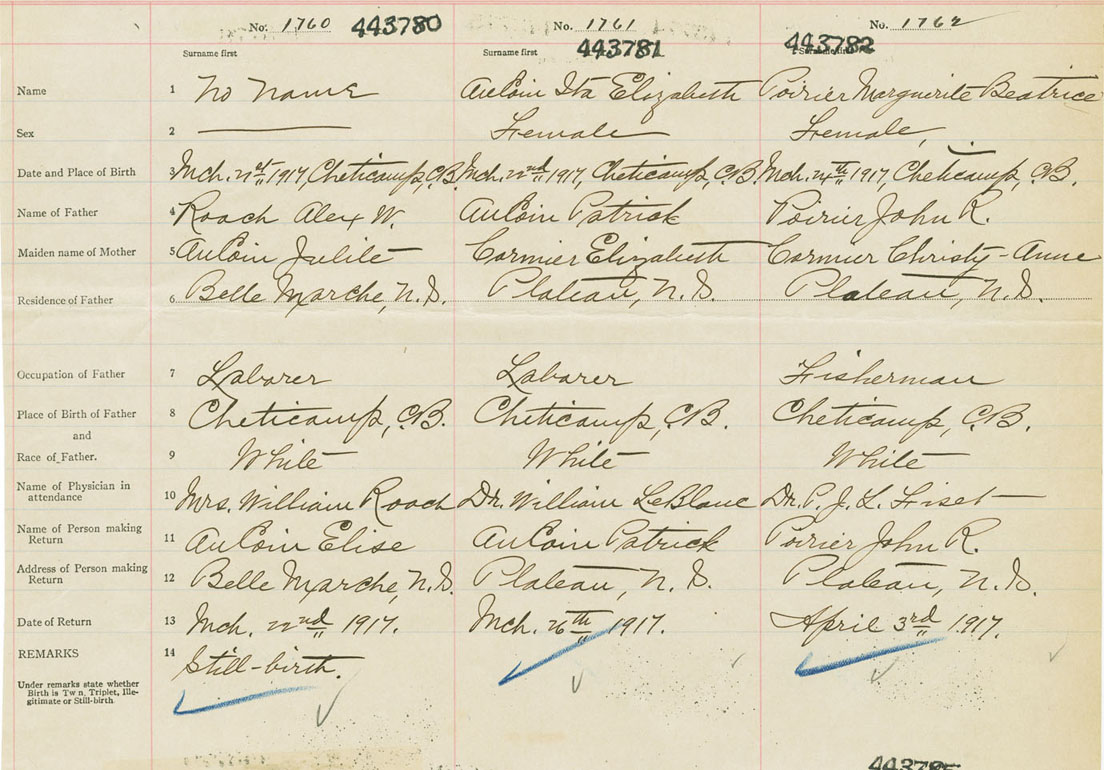 No. 1760 443780 No. 1761 No. 1762
Surname first Surname first 443781 443782 Surname first
Name 1 No name AuCoin Ita Elizabeth Poirier Marguerite Beatrice
Sex 2 Female Female,
Date and Place of Birth 3 Mch. 21st 1917, Cheticamp, C.B. Mch. 22nd 1917, Cheticamp, C.B. Mch. 24th 1917, Cheticamp, C.B.
Name of Father 4 Roach Alex W. AuCoin Patrick Poirier John R.
Maiden name of Mother 5 AuCoin Julite Cormier Elizabeth Cormier Christy-Anne
Residence of Father 6 Belle Marche, N.S. Plateau, N.S. Plateau, N.S.
Occupation of Father 7 Laborer Laborer Fisherman
Place of Birth of Father 8 Cheticamp, C.B. Cheticamp, C.B. Cheticamp, C.B.
and
Race of Father. 9 White White White
Name of Physician in
attendance 10 Mrs. William Roach Dr. William LeBlanc Dr. P. J. L. Fiset
Name of Person making
Return 11 AuCoin Elise AuCoin Patrick Poirier John R.
Address of Person making
Return 12 Belle Marche, N.S. Plateau, N.S. Plateau, N.S.
Date of Return 13 Mch. 22nd 1917. Mch. 26th 1917. April 3rd 1917.
REMARKS 14 Still-birth.
Under remarks state whether
Birth is Twn, Triplet, Ille-
gitimate or Still-birth